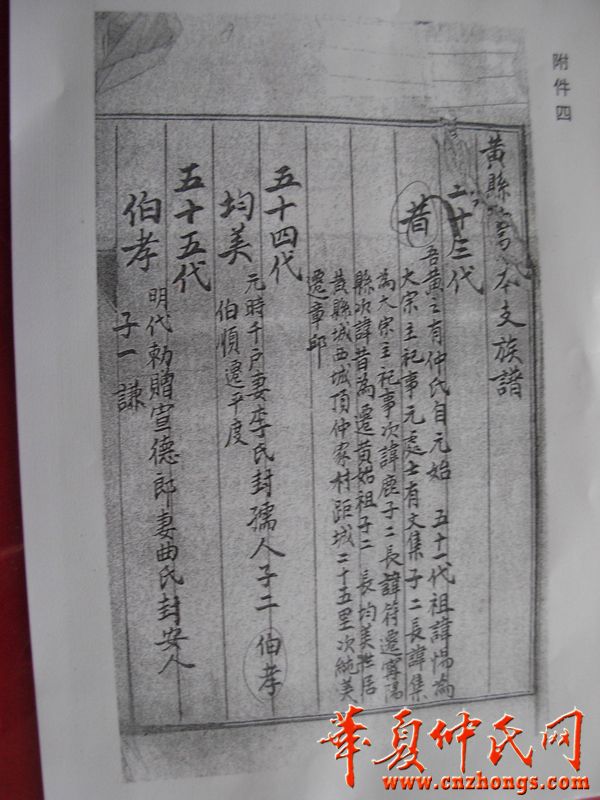 附件四
黃縣 本支族譜
五十三代
昔
吾黃之有仲氏自元始 五十一代祖諱惕為
大宗主祀事元處士有文集子二長諱集
為大宗主祀事次諱鹿子二長諱符遷寧陽
縣次諱昔為遷黃始祖子二 長均美世居
黃縣城西城頂仲家村距城二十五里次純美
遷章邱
五十四代
均美
元時千戶妻李氏封孺人子二 伯孝
伯順遷平度
五十五代
伯孝
明代勅贈宣德郎妻曲氏封安人
子一謙
華夏仲氏网
www.cnzhongs.com